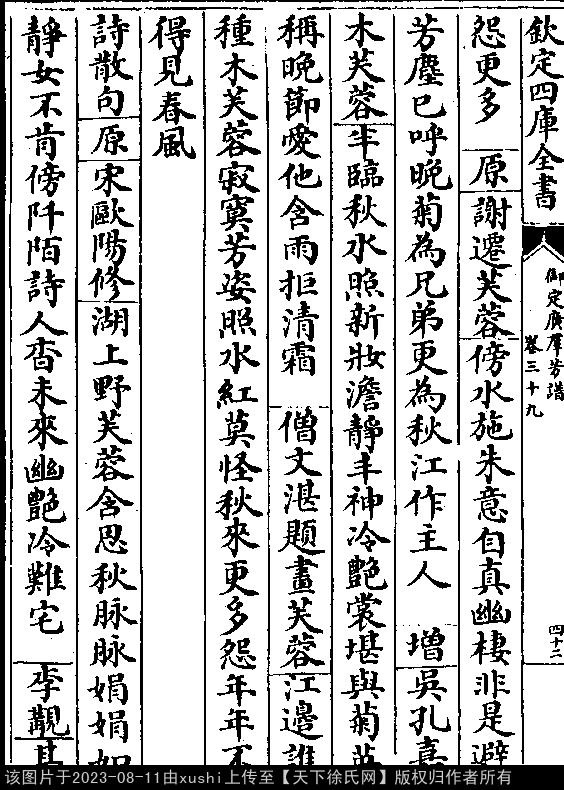 欽定四庫全書
御定廣羣芳譜
卷三十九
四十二
怨更多 原 謝遷芙蓉傍水施朱意自真幽棲非是避
芳塵已呼晚菊為兄弟更為秋江作主人 增 吳孔嘉
木芙蓉半臨秋水照新妝澹靜丰神冷艷裳堪與菊英
稱晚節愛他含雨拒清霜 僧文湛題畫芙蓉江邊誰
種木芙蓉寂寞芳姿照水紅莫怪秋來更多怨年年不
得見春風
詩散句 原 宋歐陽修湖上野芙蓉含思秋脉脉娟娟如
靜女不肯傍阡陌詩人杳未來幽艷冷難宅 李觀其
该图片于2023-08-11由xushi上传至【天下徐氏网】版权归作者所有